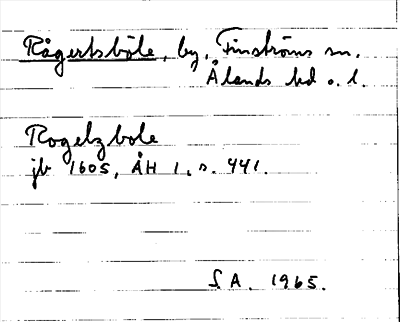 Rågertsböle, by, Finströms sn.
Ålands hd o. l.
Rogelzbole
jb 1605, ÅH 1, s. 441.
S. A. 1965.